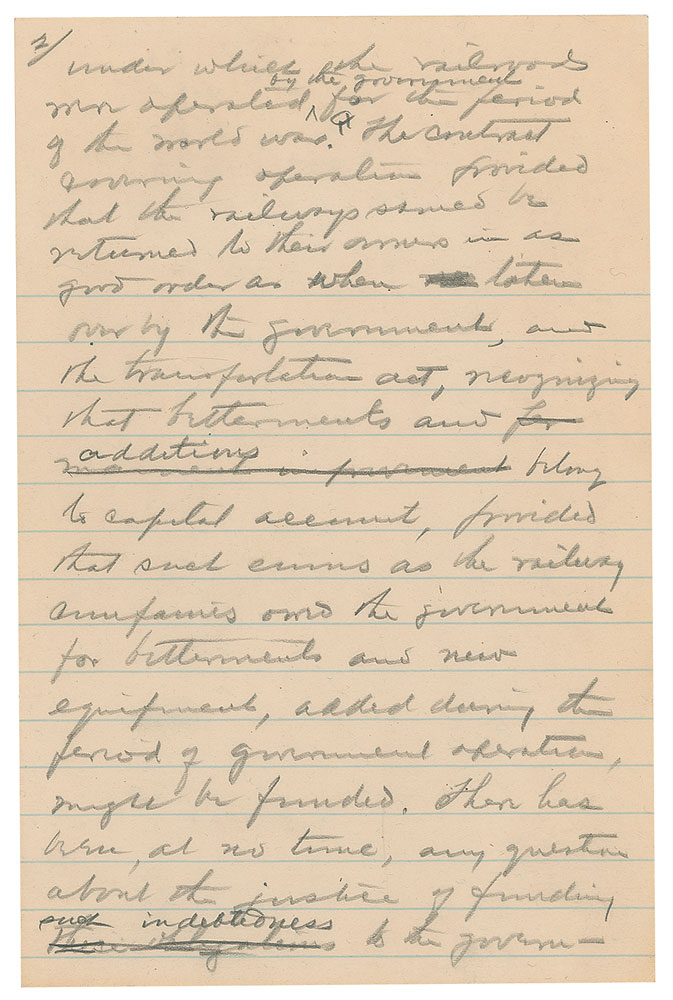 2/
under which the railroads
by the government
were operated for the period
of the world war. The contract
covering operation provided
that the railways should be
returned to their owners in as
good order as when taken
over by the government, and
the transportation act, recognizing
that betterments and for
additions
permanent improvement belong
to capital account, provided
that such sums as the railway
companies owed the government
for betterments and new
equipment, added during the
period of government operation,
might be funded. There has
been, at no time, any question
about the justice of funding
such indebtedness
these obligations to the govern-